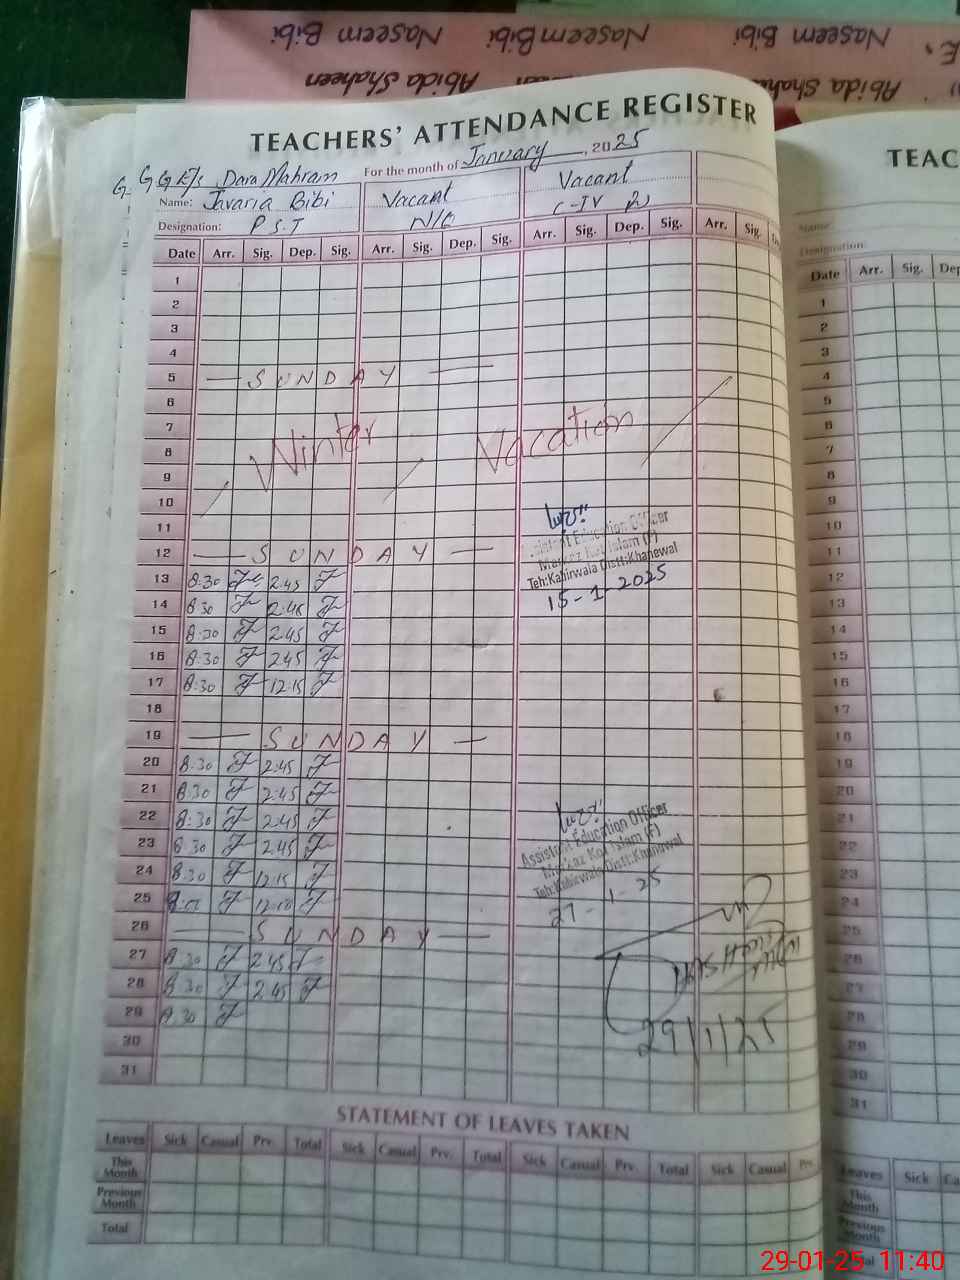 Naseem Bibi Naseem Bibi Naseem Bibi Naseem Bibi
Abida Shaheen Abida Shaheen
TEACHERS' ATTENDANCE REGISTER
G. G G E/s Dara Mahram For the month of January, 2025
Name: Javaria Bibi Vacant Vacant
Designation: P S.T N/C C-IV
Date Arr. Sig. Dep. Sig. Arr. Sig. Dep. Sig. Arr. Sig. Dep. Sig. Arr. Sig.
1
2
3
4
5 SUNDAY
6
7
8 Winter Vacation
9
10
11
12 SUNDAY
Assistant Education Officer
Markaz Kot Islam (F)
Teh:Kabirwala Distt:Khanewal
15-1-2025
13 8:30 2:45
14 8:30 2:45
15 8:30 2:45
16 8:30 2:45
17 8:30 12:15
18
19 SUNDAY
20 8:30 2:45
21 8:30 2:45
22 8:30 2:45
23 8:30 2:45
24 8:30 12:15
25
26 SUNDAY
Assistant Education Officer
Markaz Kot Islam (F)
Teh:Kabirwala Distt:Khanewal
27-1-25
27 8:30 2:45
28 8:30 2:45
29 8:30
30
31
29/1/25
STATEMENT OF LEAVES TAKEN
Leaves Sick Casual Prv. Total Sick Casual Prv. Total Sick Casual Prv. Total Sick Casual Prv.
This Month
Previous Month
Total
TEAC
Name:
Designation:
Date Arr. Sig. Dep
1
2
3
4
5
6
7
8
9
10
11
12
13
14
15
16
17
18
19
20
21
22
23
24
25
26
27
28
29
30
31
Leaves Sick Ca
This Month
Previous Month
Total
29-01-25 11:40